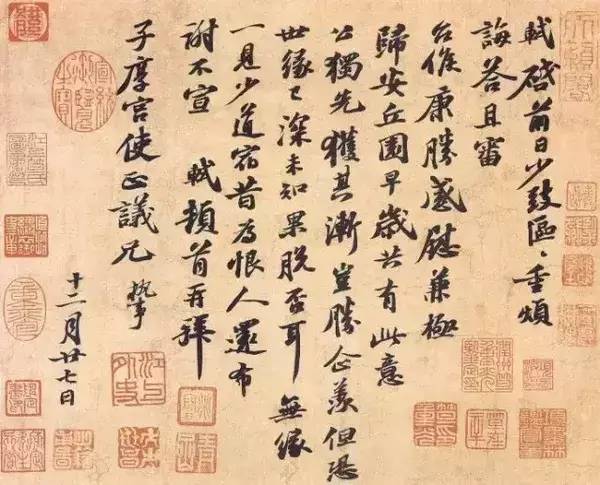 軾啓前日少致區〻重煩
誨荅且審
台候康勝感慰兼極
歸安丘園早歲共有此意
公獨先獲其漸豈勝企羨但恐
世緣已深未知果脫否耳無緣
一見少道宿昔為恨人還布
謝不宣 軾頓首再拜
子厚宮使正議兄 執事
十二月廿七日